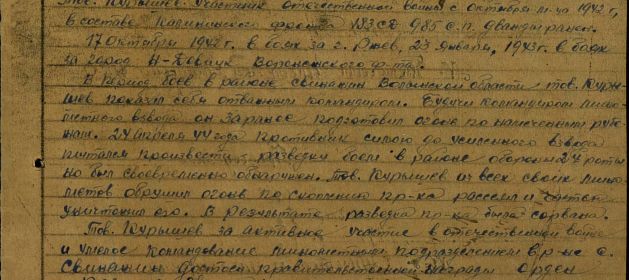 Тов. Курышев участник отечественной войны с октября м-ца 1942 г,
в составе Калининского фронта 985 с.п. дважды ранен.
17 октября 1942 г. в боях за г. Ржев, 23 января, 1943 г. в боях
за город Воронежского ф-та.
В период боев в районе Свинакин Волынской области тов. Куры-
шев показал себя отважным командиром. Будучи командиром мино-
метного взвода он заранее подготовил огонь по намеченным рубе-
жам. 24 апреля 44 года противник силою до усиленного взвода
пытался произвести разведку боем в районе обороны 24 роты
но был своевременно обнаружен. Тов. Курышев из всех своих мино-
метов обрушил огонь по скоплению пр-ка рассеял и частью
уничтожил его. В результате разведка пр-ка была сорвана.
Тов. Курышев за активное участие в отечественной войне
и умелое командование минометным подразделением в р-не с.
Свинакин достоин правительственной награды Орден